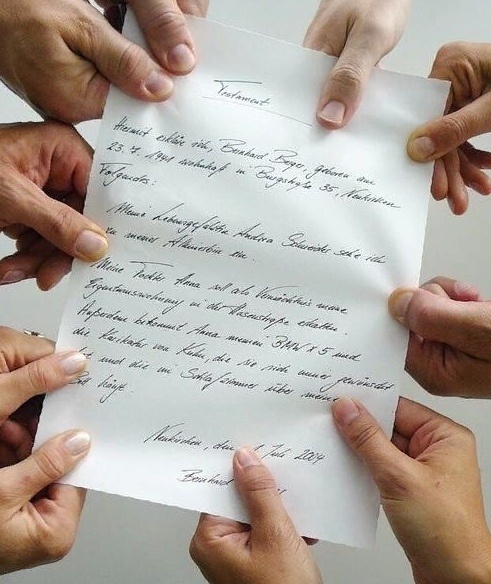 Testament
Hiermit erkläre ich, Bernhard Beyer, geboren am
23. 7. 1941 wohnhaft in Burgstraße 35, Neukirchen
Folgendes:
Meine Lebensgefährtin Andrea Schneider setze ich
zu meiner Alleinerbin ein.
Meine Tochter Anna soll als Vermächtnis meine
Eigentumswohnung in der Rosenstraße erhalten.
Außerdem bekommt Anna meinen BMW X5 und
die Karikatur von Kuhn, die sie sich immer gewünscht
und die im Schlafzimmer über meinem
Bett hängt.
Neukirchen, den 1. Juli 2004
Bernhard